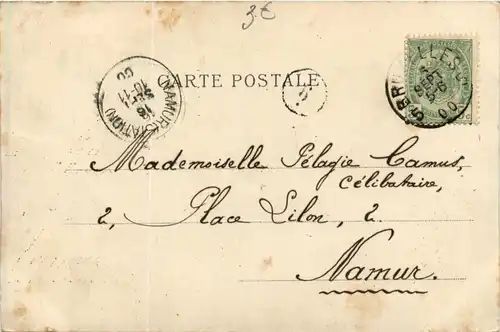 3.€
CARTE POSTALE
NAMUR (STATION)
10-11
16
SEPT
00
Mademoiselle Pélagie Camus,
Célibataire,
2, Place Lilon, 2.
Namur.